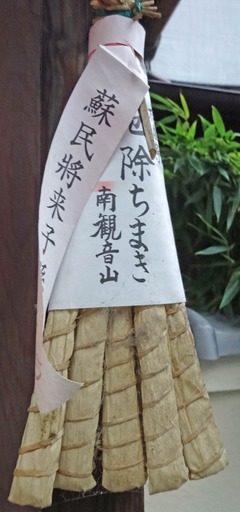 蘇民將来子
除ちまき
南観音山